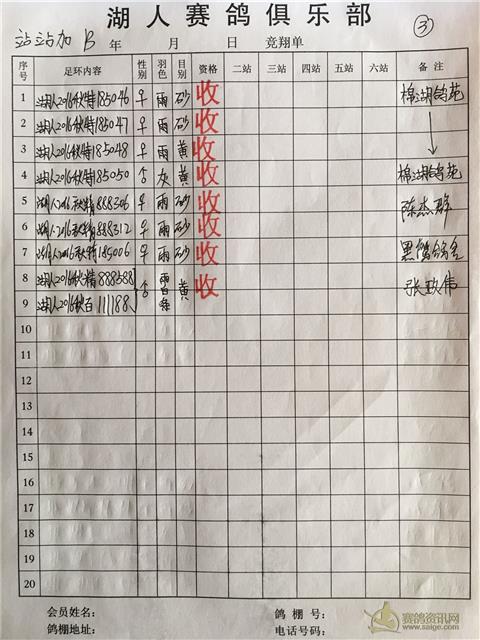 湖人赛鸽俱乐部
③
站站加 B 年 月 日 竞翔单
序号 足环内容 性别 羽色 目别 资格 二站 三站 四站 五站 六站 备注
1 湖人2016秋特185046 早 雨 砂 收 棉湖鸽苑
2 湖人2016秋特185047 早 雨 砂 收
3 湖人2016秋特185048 早 雨 黄 收
4 湖人2016秋特185050 合 灰 黄 收 棉湖鸽苑
5 湖人2016秋精888306 早 雨 砂 收 陈杰群
6 湖人2016秋精888312 早 雨 砂 收
7 湖人2016秋特185006 早 雨 砂 收
8 湖人2016秋精888588 合 雨白条 黄 收 张政伟
9 湖人2016秋百111188
10
11
12
13
14
15
16
17
18
19
20
会员姓名： 鸽棚号：
鸽棚地址： 电话号码：
赛鸽资讯网
www.saige.com